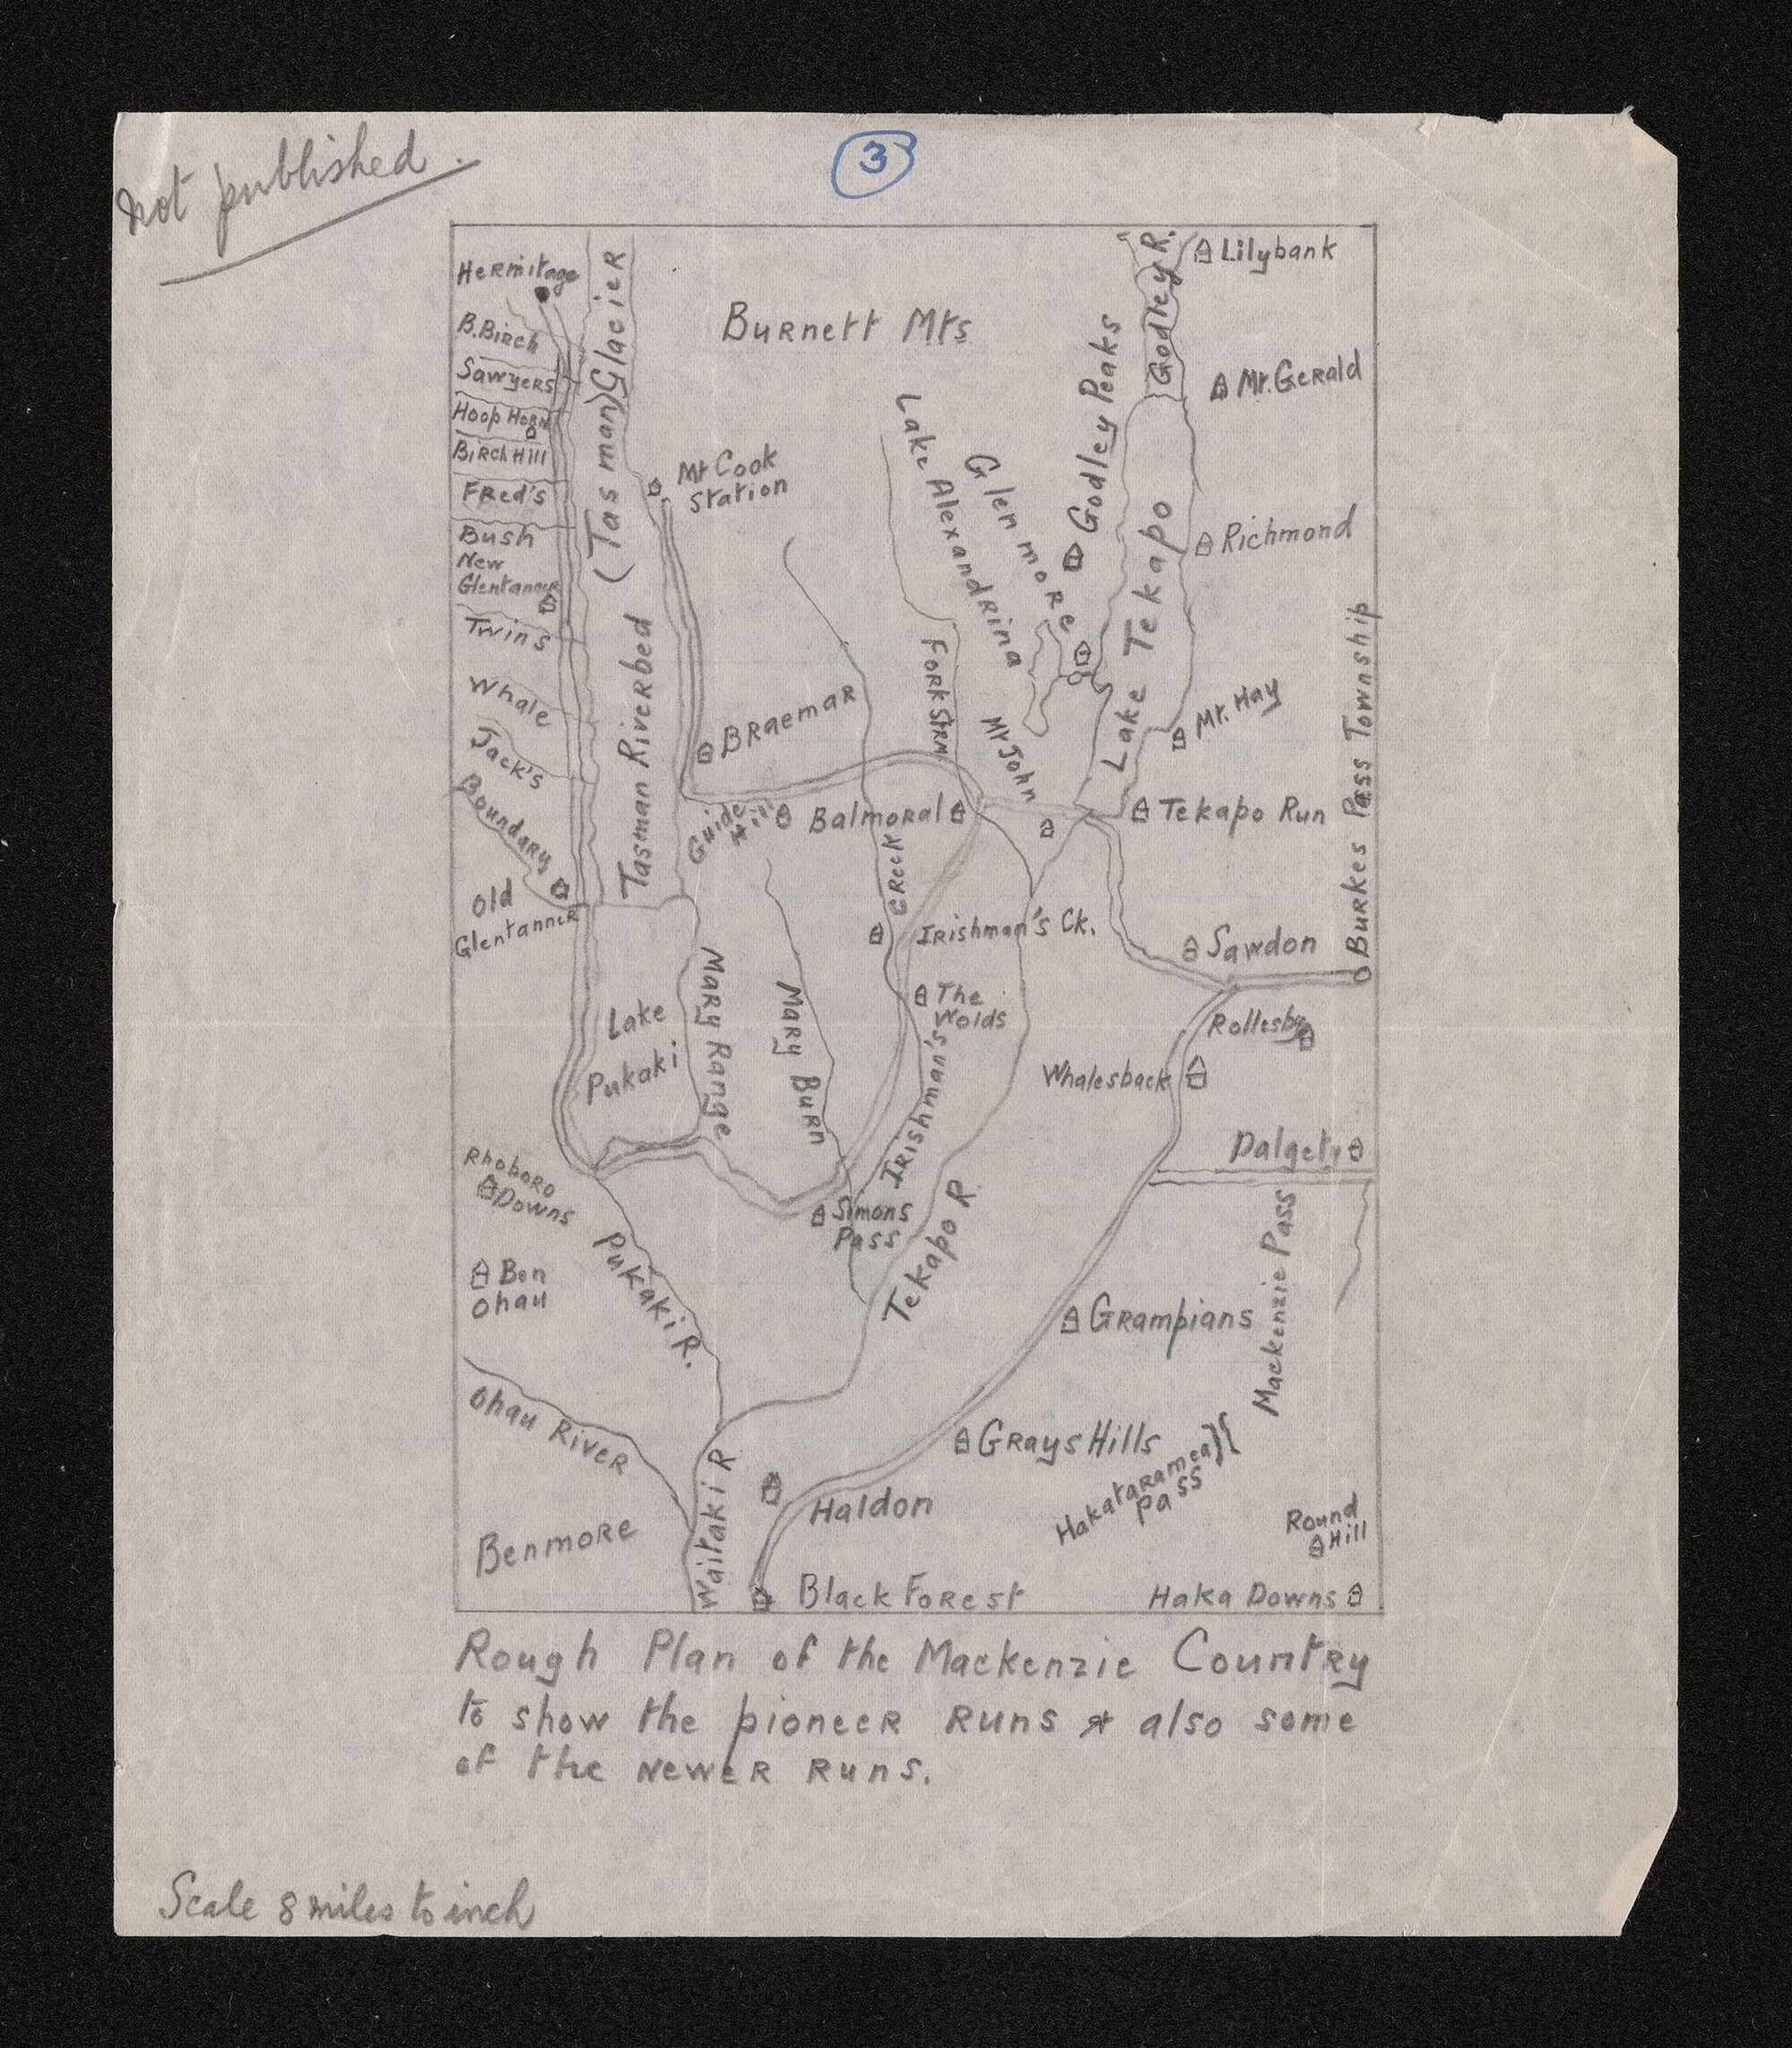 not published.
3
Hermitage
B. Birch
Sawyers
Hoop Horn
Birch Hill
Fred's
Bush
New
Glentanner
Twins
Whale
Jack's
Boundary
Old
Glentanner
(Tasman) Glacier
Tasman Riverbed
Burnett Mts
Mt Cook
Station
Lake Alexandrina
Glenmore
Godley Peaks
Godley R.
Lilybank
Mt. Gerald
Richmond
Lake Tekapo
Fork Strm
Mt John
Mt. Hay
Burkes Pass Township
Braemar
Guide
Hill
Balmoral
Tekapo Run
Creek
Irishman's Ck.
Sawdon
Lake
Pukaki
Mary Range
Mary Burn
The
Wolds
Irishman's
Rollesby
Whalesback
Dalgety
Rhoboro
Downs
Simons
Pass
Tekapo R
Pukaki R.
Ben
Ohau
Grampians
Mackenzie Pass
Ohau River
Grays Hills
Hakataramea
Pass
Waitaki R
Haldon
Round
Hill
Benmore
Black Forest
Haka Downs
Rough Plan of the Mackenzie Country
to show the pioneer runs & also some
of the newer runs.
Scale 8 miles to inch